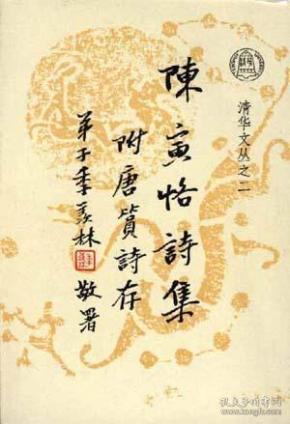 清华文丛之二
陳寅恪詩集
附唐篔詩存
弟子季羨林
敬署
孔夫子旧书网